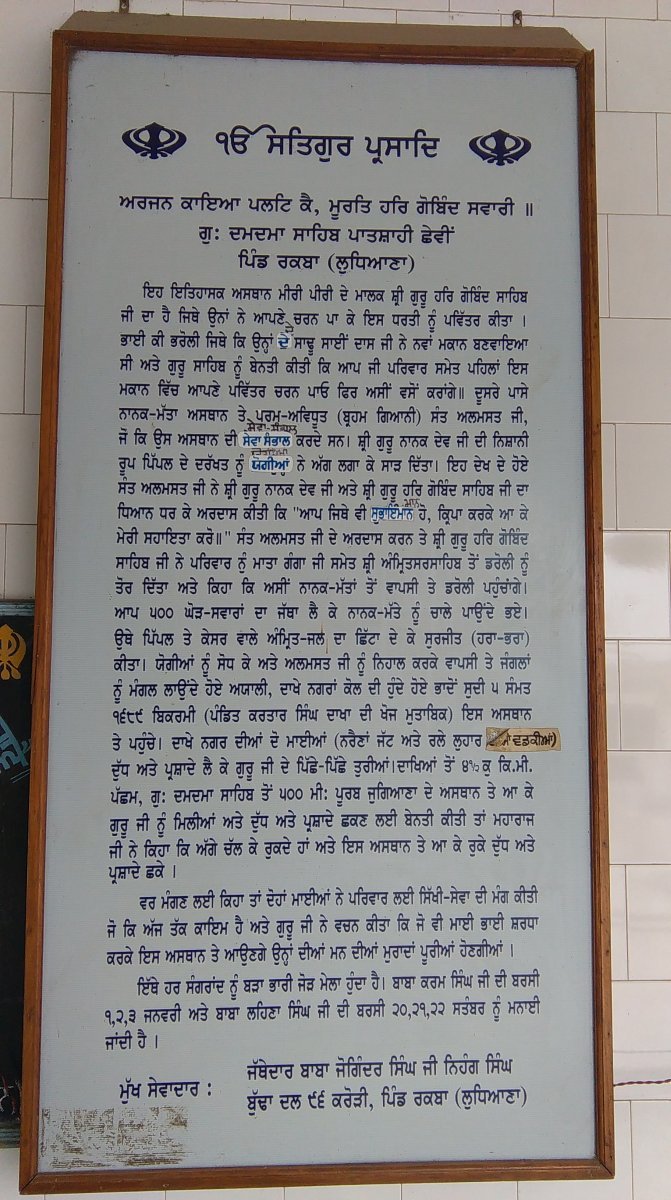 ੴ ਸਤਿਗੁਰ ਪ੍ਰਸਾਦਿ
ਅਰਜਨ ਕਾਇਆ ਪਲਟਿ ਕੈ, ਮੂਰਤਿ ਹਰਿ ਗੋਬਿੰਦ ਸਵਾਰੀ ॥
ਗੁ: ਦਮਦਮਾ ਸਾਹਿਬ ਪਾਤਸ਼ਾਹੀ ਛੇਵੀਂ
ਪਿੰਡ ਰਕਬਾ (ਲੁਧਿਆਣਾ)
ਇਹ ਇਤਿਹਾਸਕ ਅਸਥਾਨ ਮੀਰੀ ਪੀਰੀ ਦੇ ਮਾਲਕ ਸ਼੍ਰੀ ਗੁਰੂ ਹਰਿ ਗੋਬਿੰਦ ਸਾਹਿਬ
ਜੀ ਦਾ ਹੈ ਜਿਥੇ ਉਨਾਂ ਨੇ ਆਪਣੇ ਚਰਨ ਪਾ ਕੇ ਇਸ ਧਰਤੀ ਨੂੰ ਪਵਿੱਤਰ ਕੀਤਾ ।
ਭਾਈ ਕੀ ਭਰੋਲੀ ਜਿਥੇ ਕਿ ਉਨ੍ਹਾਂ ਦੇ ਸਾਢੂ ਸਾਈਂ ਦਾਸ ਜੀ ਨੇ ਨਵਾਂ ਮਕਾਨ ਬਣਵਾਇਆ
ਸੀ ਅਤੇ ਗੁਰੂ ਸਾਹਿਬ ਨੂੰ ਬੇਨਤੀ ਕੀਤੀ ਕਿ ਆਪ ਜੀ ਪਰਿਵਾਰ ਸਮੇਤ ਪਹਿਲਾਂ ਇਸ
ਮਕਾਨ ਵਿੱਚ ਆਪਣੇ ਪਵਿੱਤਰ ਚਰਨ ਪਾਓ ਫਿਰ ਅਸੀਂ ਵਸੋਂ ਕਰਾਂਗੇ॥ ਦੂਸਰੇ ਪਾਸੇ
ਨਾਨਕ-ਮੱਤਾ ਅਸਥਾਨ ਤੇ ਪਰਮ-ਅਵਿਧੂਤ (ਬ੍ਰਹਮ ਗਿਆਨੀ) ਸੰਤ ਅਲਮਸਤ ਜੀ,
ਜੋ ਕਿ ਉਸ ਅਸਥਾਨ ਦੀ ਸੇਵਾ ਸੰਭਾਲ ਕਰਦੇ ਸਨ। ਸ਼੍ਰੀ ਗੁਰੂ ਨਾਨਕ ਦੇਵ ਜੀ ਦੀ ਨਿਸ਼ਾਨੀ
ਰੂਪ ਪਿੱਪਲ ਦੇ ਦਰੱਖਤ ਨੂੰ ਯੋਗੀਆਂ ਨੇ ਅੱਗ ਲਗਾ ਕੇ ਸਾੜ ਦਿੱਤਾ। ਇਹ ਦੇਖ ਦੇ ਹੋਏ
ਸੰਤ ਅਲਮਸਤ ਜੀ ਨੇ ਸ਼੍ਰੀ ਗੁਰੂ ਨਾਨਕ ਦੇਵ ਜੀ ਅਤੇ ਸ਼੍ਰੀ ਗੁਰੂ ਹਰਿ ਗੋਬਿੰਦ ਸਾਹਿਬ ਜੀ ਦਾ
ਧਿਆਨ ਧਰ ਕੇ ਅਰਦਾਸ ਕੀਤੀ ਕਿ "ਆਪ ਜਿਥੇ ਵੀ ਸੁਭਾਇਮਾਨ ਹੋ, ਕ੍ਰਿਪਾ ਕਰਕੇ ਆ ਕੇ
ਮੇਰੀ ਸਹਾਇਤਾ ਕਰੋ॥" ਸੰਤ ਅਲਮਸਤ ਜੀ ਦੇ ਅਰਦਾਸ ਕਰਨ ਤੇ ਸ਼੍ਰੀ ਗੁਰੂ ਹਰਿ ਗੋਬਿੰਦ
ਸਾਹਿਬ ਜੀ ਨੇ ਪਰਿਵਾਰ ਨੂੰ ਮਾਤਾ ਗੰਗਾ ਜੀ ਸਮੇਤ ਸ਼੍ਰੀ ਅੰਮ੍ਰਿਤਸਰਸਾਹਿਬ ਤੋਂ ਡਰੋਲੀ ਨੂੰ
ਤੋਰ ਦਿੱਤਾ ਅਤੇ ਕਿਹਾ ਕਿ ਅਸੀਂ ਨਾਨਕ-ਮੱਤਾਂ ਤੋਂ ਵਾਪਸੀ ਤੇ ਡਰੋਲੀ ਪਹੁੰਚਾਂਗੇ।
ਆਪ ੫੦੦ ਘੋੜ-ਸਵਾਰਾਂ ਦਾ ਜੱਥਾ ਲੈ ਕੇ ਨਾਨਕ-ਮੱਤੇ ਨੂੰ ਚਾਲੇ ਪਾਉਂਦੇ ਭਏ।
ਉਥੇ ਪਿੱਪਲ ਤੇ ਕੇਸਰ ਵਾਲੇ ਅੰਮ੍ਰਿਤ-ਜਲ ਦਾ ਛਿੱਟਾ ਦੇ ਕੇ ਸੁਰਜੀਤ (ਹਰਾ-ਭਰਾ)
ਕੀਤਾ। ਯੋਗੀਆਂ ਨੂੰ ਸੋਧ ਕੇ ਅਤੇ ਅਲਮਸਤ ਜੀ ਨੂੰ ਨਿਹਾਲ ਕਰਕੇ ਵਾਪਸੀ ਤੇ ਜੰਗਲਾਂ
ਨੂੰ ਮੰਗਲ ਲਾਉਂਦੇ ਹੋਏ ਅਯਾਲੀ, ਦਾਖੇ ਨਗਰਾਂ ਕੋਲ ਦੀ ਹੁੰਦੇ ਹੋਏ ਭਾਦੋਂ ਸੁਦੀ ੫ ਸੰਮਤ
੧੬੮੯ ਬਿਕਰਮੀ (ਪੰਡਿਤ ਕਰਤਾਰ ਸਿੰਘ ਦਾਖਾ ਦੀ ਖੋਜ ਮੁਤਾਬਿਕ) ਇਸ ਅਸਥਾਨ
ਤੇ ਪਹੁੰਚੇ। ਦਾਖੇ ਨਗਰ ਦੀਆਂ ਦੋ ਮਾਈਆਂ (ਨਰੈਣਾਂ ਜੱਟ ਅਤੇ ਰਲੇ ਲੁਹਾਰ ਵਡਕੀਆਂ)
ਦੁੱਧ ਅਤੇ ਪ੍ਰਸ਼ਾਦੇ ਲੈ ਕੇ ਗੁਰੂ ਜੀ ਦੇ ਪਿੱਛੇ-ਪਿੱਛੇ ਤੁਰੀਆਂ।ਦਾਖਿਆਂ ਤੋਂ ੪½ ਕੁ ਕਿ.ਮੀ.
ਪੱਛਮ, ਗੁ: ਦਮਦਮਾ ਸਾਹਿਬ ਤੋਂ ੫੦੦ ਮੀ: ਪੂਰਬ ਜੁਗਿਆਣਾ ਦੇ ਅਸਥਾਨ ਤੇ ਆ ਕੇ
ਗੁਰੂ ਜੀ ਨੂੰ ਮਿਲੀਆਂ ਅਤੇ ਦੁੱਧ ਅਤੇ ਪ੍ਰਸ਼ਾਦੇ ਛਕਣ ਲਈ ਬੇਨਤੀ ਕੀਤੀ ਤਾਂ ਮਹਾਰਾਜ
ਜੀ ਨੇ ਕਿਹਾ ਕਿ ਅੱਗੇ ਚੱਲ ਕੇ ਰੁਕਦੇ ਹਾਂ ਅਤੇ ਇਸ ਅਸਥਾਨ ਤੇ ਆ ਕੇ ਰੁਕੇ ਦੁੱਧ ਅਤੇ
ਪ੍ਰਸ਼ਾਦੇ ਛਕੇ ।
ਵਰ ਮੰਗਣ ਲਈ ਕਿਹਾ ਤਾਂ ਦੋਹਾਂ ਮਾਈਆਂ ਨੇ ਪਰਿਵਾਰ ਲਈ ਸਿੱਖੀ-ਸੇਵਾ ਦੀ ਮੰਗ ਕੀਤੀ
ਜੋ ਕਿ ਅੱਜ ਤੱਕ ਕਾਇਮ ਹੈ ਅਤੇ ਗੁਰੂ ਜੀ ਨੇ ਵਚਨ ਕੀਤਾ ਕਿ ਜੋ ਵੀ ਮਾਈ ਭਾਈ ਸ਼ਰਧਾ
ਕਰਕੇ ਇਸ ਅਸਥਾਨ ਤੇ ਆਉਣਗੇ ਉਨ੍ਹਾਂ ਦੀਆਂ ਮਨ ਦੀਆਂ ਮੁਰਾਦਾਂ ਪੂਰੀਆਂ ਹੋਣਗੀਆਂ ।
ਇੱਥੇ ਹਰ ਸੰਗਰਾਂਦ ਨੂੰ ਬੜਾ ਭਾਰੀ ਜੋੜ ਮੇਲਾ ਹੁੰਦਾ ਹੈ। ਬਾਬਾ ਕਰਮ ਸਿੰਘ ਜੀ ਦੀ ਬਰਸੀ
੧,੨,੩ ਜਨਵਰੀ ਅਤੇ ਬਾਬਾ ਲਹਿਣਾ ਸਿੰਘ ਜੀ ਦੀ ਬਰਸੀ ੨੦,੨੧,੨੨ ਸਤੰਬਰ ਨੂੰ ਮਨਾਈ
ਜਾਂਦੀ ਹੈ ।
ਮੁੱਖ ਸੇਵਾਦਾਰ : ਜੱਥੇਦਾਰ ਬਾਬਾ ਜੋਗਿੰਦਰ ਸਿੰਘ ਜੀ ਨਿਹੰਗ ਸਿੰਘ
ਬੁੱਢਾ ਦਲ ੯੬ ਕਰੋੜੀ, ਪਿੰਡ ਰਕਬਾ (ਲੁਧਿਆਣਾ)